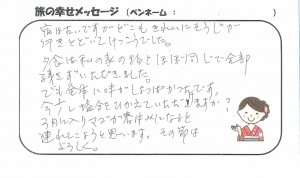 旅の幸せメッセージ (ペンネーム： )
宿は古いですがどこもきれいにそうじが
行きとどいてけっこうでした。
夕食は私の家の味とほぼ同じで全部
残さずいただきました。
でも全体に味がしょっぱかったです。
今少し塩分をひかえていただけますか？
3月に入りマゴが春休みになると
連れてこようと思います。その節は
よろしく。